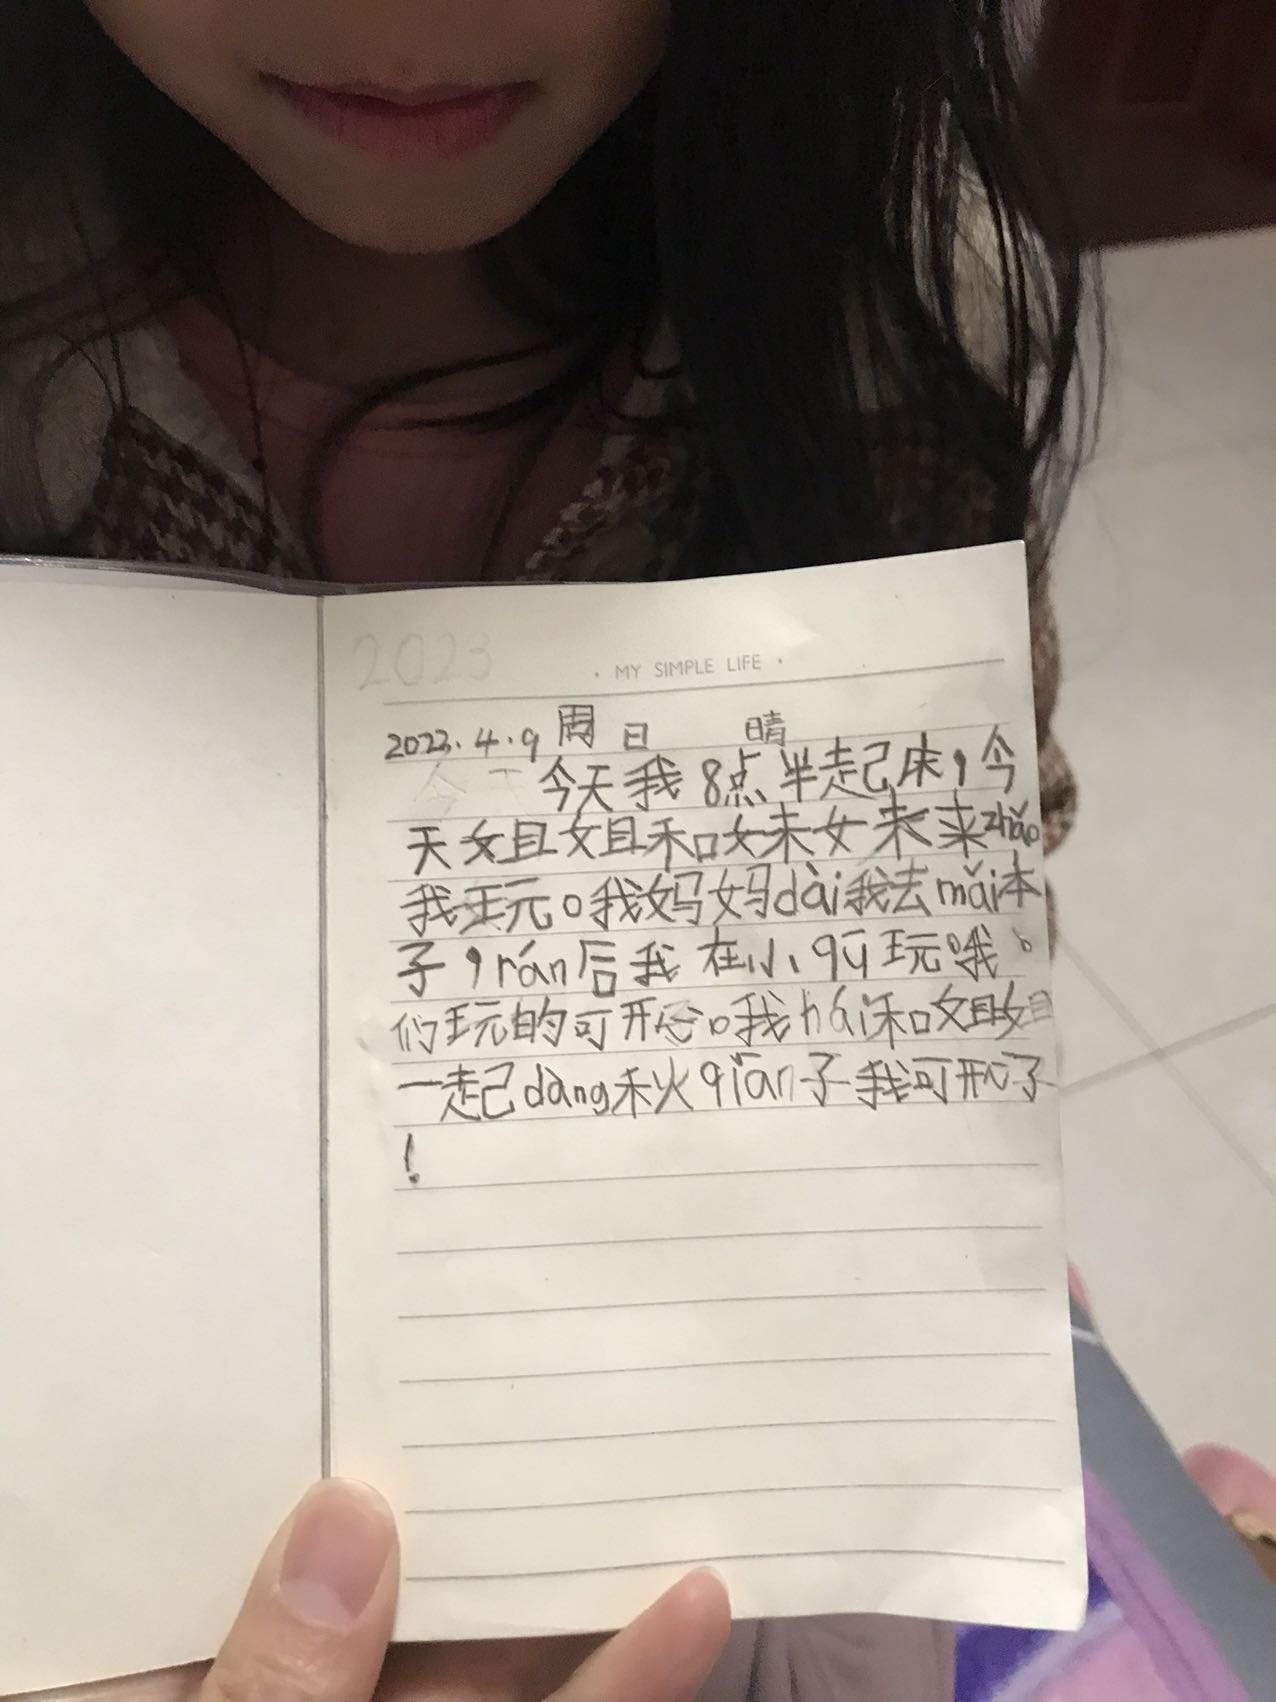 2023
· MY SIMPLE LIFE ·
2023.4.9 周日 晴
今天
今天我8点半起床，今
天姐姐和妹妹来zhǎo
我玩。我妈妈dài我去mǎi本
子，rán后我在小qū玩哦。
们玩的可开心。我hái和姐姐
一起dàng秋qiān子我可开心了
！